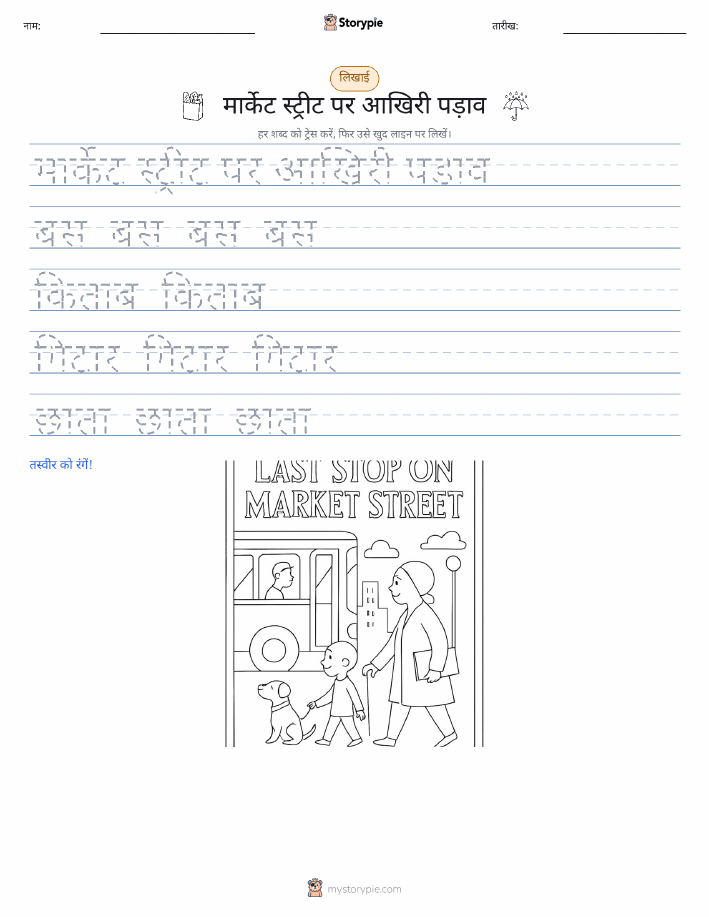 नाम:
Storypie
तारीख:
लिखाई
मार्केट स्ट्रीट पर आखिरी पड़ाव
हर शब्द को ट्रेस करें, फिर उसे खुद लाइन पर लिखें।
मार्केट स्ट्रीट पर आखिरी पड़ाव
बस बस बस बस
किताब किताब
गिटार गिटार गिटार
छाता छाता छाता
तस्वीर को रंगें!
LAST STOP ON
MARKET STREET
mystorypie.com